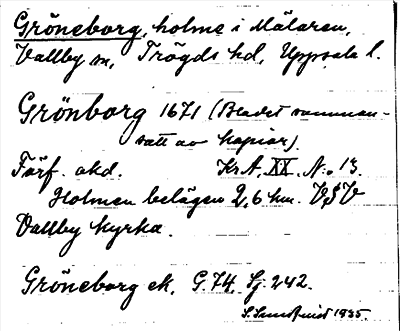 Gröneborg, holme i Mälaren,
Vallby sn, Trögds hd, Uppsala l.
Grönborg 1671 (Bladet samman-
satt av kopior).
Förf. okd. Kr.A. XX. N:o 13.
Holmen belägen 2,6 km. V§V
Vallby kyrka.
Gröneborg ek. G.74. Sj 242.
S. Sundquist 1935.